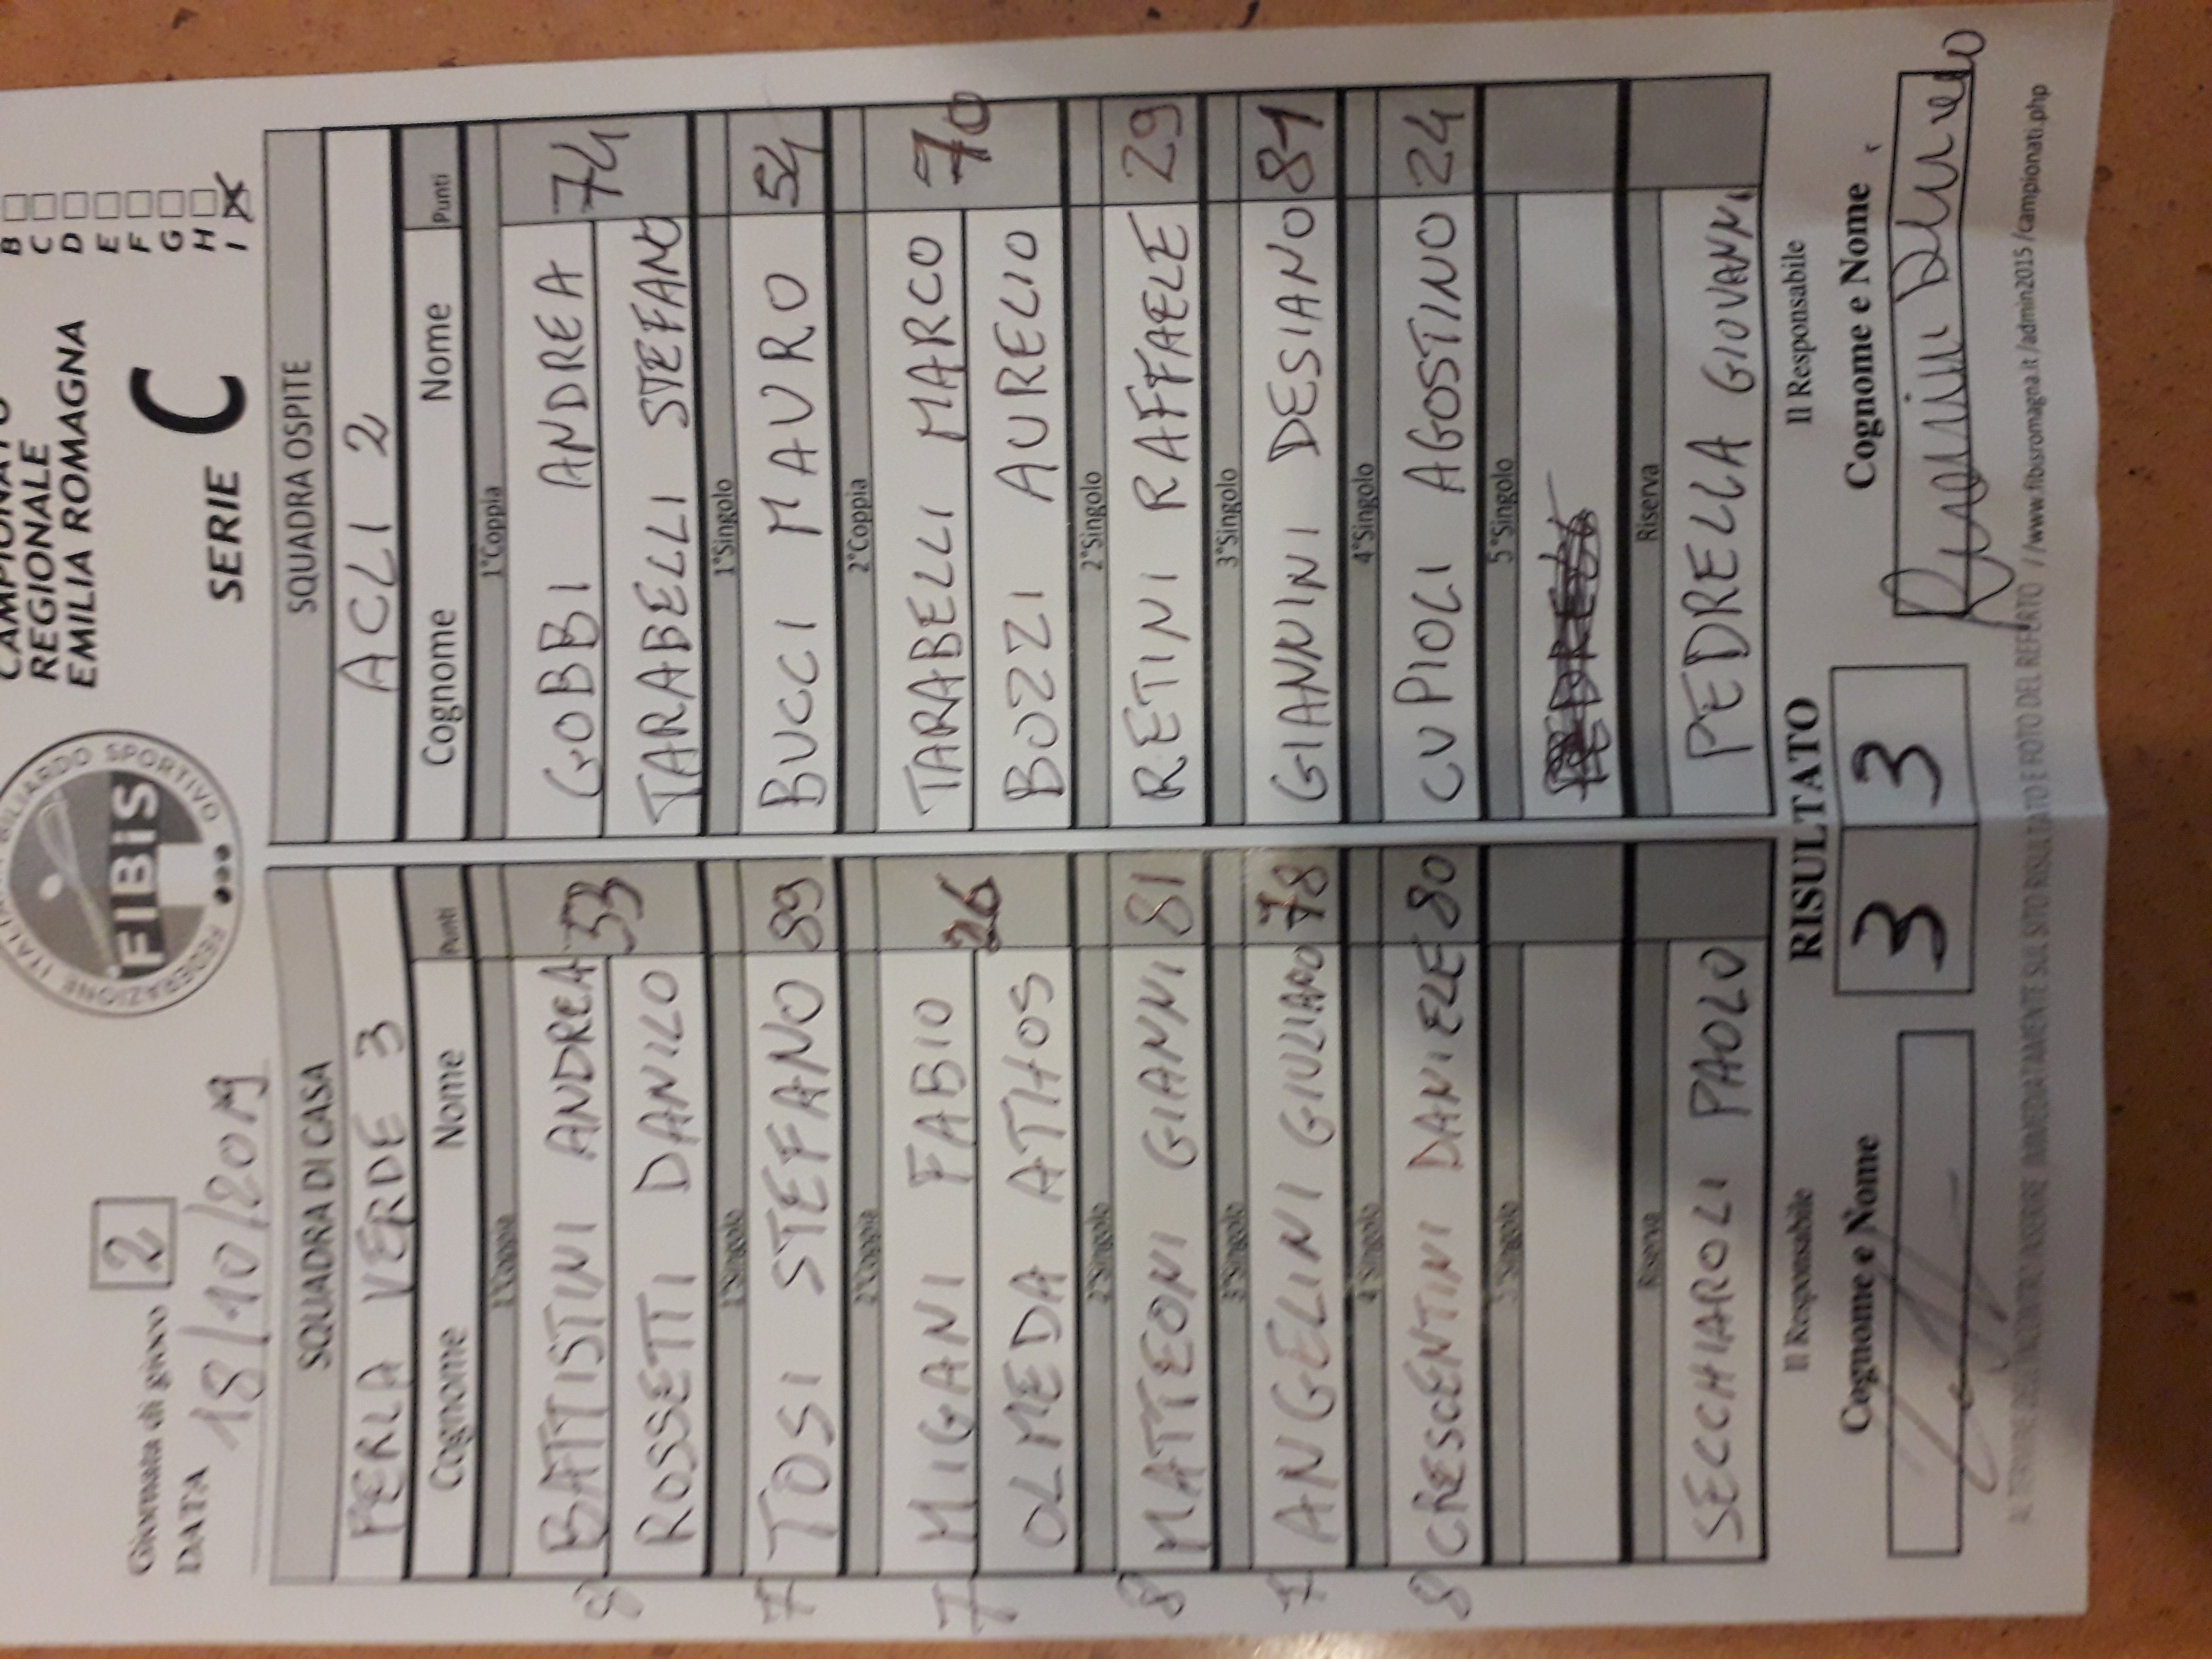 Giornata di gioco 2
DATA 18/10/2019
FEDERAZIONE ITALIANA BILIARDO SPORTIVO
FIBiS
CAMPIONATO
REGIONALE
EMILIA ROMAGNA
SERIE C
B
C
D
E
F
G
H
I X
SQUADRA DI CASA SQUADRA OSPITE
PERLA VERDE 3 ACLI 2
Cognome Nome Punti Cognome Nome Punti
1°Coppia 1°Coppia
8 BATTISTINI ANDREA 53 GOBBI ANDREA 74
ROSSETTI DANILO TARABELLI STEFANO
1°Singolo 1°Singolo
7 TOSI STEFANO 89 BUCCI MAURO 54
2°Coppia 2°Coppia
7 MIGANI FABIO 26 TARABELLI MARCO 70
OLMEDA ATHOS BOZZI AURELIO
2°Singolo 2°Singolo
8 MATTEONI GIANNI 81 RETINI RAFFAELE 29
3°Singolo 3°Singolo
7 ANGELINI GIULIANO 78 GIANNINI DESIANO 81
4°Singolo 4°Singolo
8 CRESCENTINI DANIELE 80 CUPIOLI AGOSTINO 24
5°Singolo 5°Singolo
Riserva Riserva
SECCHIAROLI PAOLO PEDRELLA GIOVANNI
Il Responsabile RISULTATO Il Responsabile
Cognome e Nome 3 3 Cognome e Nome
AL TERMINE DELL'INCONTRO INSERIRE IMMEDIATAMENTE SUL SITO RISULTATO E FOTO DEL REFERTO //www.fibisromagna.it/admin2015/campionati.php